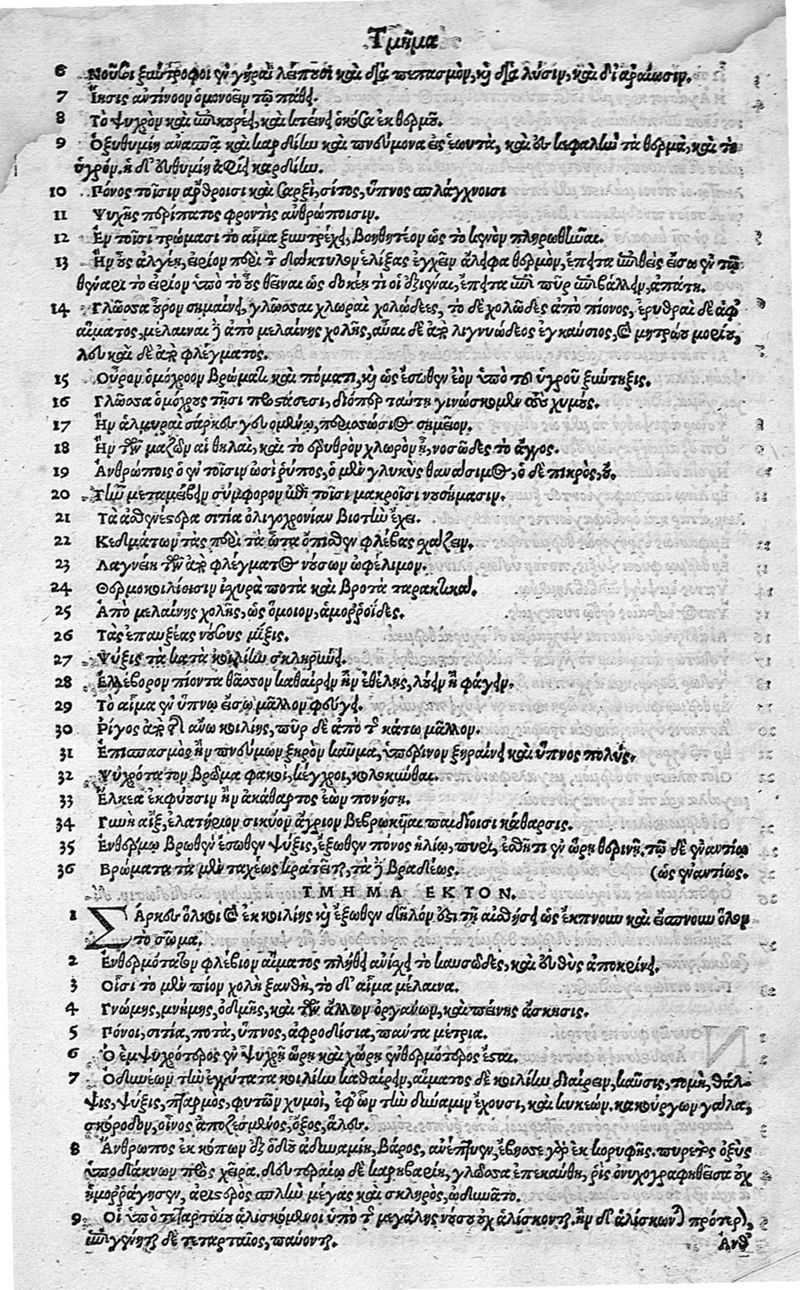 Τμῆμα
6 Νοῦσοι ξύντροφοι ἐν γήραϊ λείπουσι καὶ διὰ πεπασμὸν, καὶ διὰ λύσιν, καὶ δι' ἀραίωσιν.
7 Ἴησις ἀντίνοον ὁμονοέειν τῷ πάθει.
8 Τὸ ψυχρὸν καὶ ἐπικουρέει, καὶ κτείνει ὁκόσα ἐκ θερμοῦ.
9 Ὀξυθυμίη ἀνασπᾷ καὶ καρδίην καὶ πνεύμονα ἐς ἑωυτὰ, καὶ ἐς κεφαλὴν τὰ θερμὰ, καὶ τὸ
ὑγρόν. ἡ δ' εὐθυμίη ἀφίει καρδίην.
10 Πόνος τοῖσιν ἄρθροισι καὶ σαρξὶ, σίτος, ὕπνος σπλάγχνοισι
11 Ψυχῆς περίπατος φροντὶς ἀνθρώποισιν.
12 Ἐν τοῖσι τρώμασι τὸ αἷμα ξυντρέχει, βοηθητέον ὡς τὸ κενὸν πληρωθῆναι.
13 Ἢν οὖς ἀλγέῃ, εἴριον περὶ τὸν δάκτυλον ἑλίξας ἐγχέειν ἄλειφα θερμὸν, ἔπειτα ἐπιθεὶς ἔσω ἐν τῷ
θέναρι τὸ εἴριον ὑπὸ τὸ οὖς θεῖναι ὡς δοκέῃ τι οἱ ἐξιέναι, ἔπειτα ἐπὶ πῦρ ἐπιβάλλειν, ἀπάτη.
14 Γλῶσσα οὖρον σημαίνει, γλῶσσαι χλωραὶ χολώδεες, τὸ δὲ χολῶδες ἀπὸ πίονος, ἐρυθραὶ δὲ ἀφ'
αἵματος, μέλαιναι δὲ ἀπὸ μελαίνης χολῆς, αὖαι δὲ ἀπὸ λιγνυώδεος ἐγκαύσιος, καὶ μητρώου μορίου,
λευκαὶ δὲ ἀπὸ φλέγματος.
15 Οὖρον ὁμόχροον βρώματι καὶ πόματι, καὶ ὡς ἔσωθεν ἐὸν ὑπὸ τοῦ ὑγροῦ ξύντηξις.
16 Γλῶσσα ὁμόχρος τῇσι προστάσεσι, διόπερ ταύτῃ γινώσκομεν τοὺς χυμούς.
17 Ἢν ἁλμυραὶ σάρκες γευομένῳ, περισσώσιος σημεῖον.
18 Ἢν τῶν μαζῶν αἱ θηλαὶ, καὶ τὸ ἐρυθρὸν χλωρὸν ᾖ, νοσῶδες τὸ ἄγγος.
19 Ἀνθρώποις ὁ ἐν τοῖσιν ὠσὶ ῥύπος, ὁ μὲν γλυκὺς θανάσιμος, ὁ δὲ πικρὸς, οὔ.
20 Γῆν μεταμείβειν σύμφορον ἐπὶ τοῖσι μακροῖσι νοσήμασιν.
21 Τὰ ἀσθενέστερα σιτία ὀλιγοχρόνιον βιοτὴν ἔχει.
22 Κεδμάτων τὰς περὶ τὰ ὦτα ὄπισθεν φλέβας σχάζειν.
23 Λαγνείη τῶν ἀπὸ φλέγματος νούσων ὠφέλιμον.
24 Θερμοκοιλίοισιν ἰσχυρὰ ποτὰ καὶ βροτὰ ταρακτικά.
25 Ἀπὸ μελαίνης χολῆς, ὡς ὅμοιον, αἱμοῤῥοΐδες.
26 Τὰς ἐπαυξέας νούσους μίξις.
27 Ψύξις τὰ κατὰ κοιλίην σκληρύνει.
28 Ἑλλέβορον πίοντα θᾶσσον καθαίρειν ἢν ἐθέλῃς, λούειν ἢ φαγεῖν.
29 Τὸ αἷμα ἐν ὕπνῳ εἴσω μᾶλλον φεύγει.
30 Ῥῖγος ἀπὸ τῆς ἄνω κοιλίης, πῦρ δὲ ἀπὸ τῆς κάτω μᾶλλον.
31 Ἐπίσπασμος ἢν πνεύμων ξηρὸν καῦμα, ὑποθερινὸν ξηραίνει καὶ ὕπνος πολύς.
32 Ψυχρότατον βρῶμα φακοὶ, κέγχροι, κολοκύνθαι.
33 Ἕλκεα ἐκφύουσιν ἢν ἀκάθαρτος ἐὼν πονήσῃ.
34 Γυνὴ αἲξ, ἐλατήριον σικύον ἄγριον βεβρωκυῖαι παιδίοισι κάθαρσις.
35 Ἐνθέρμῳ βρωθὲν ἔσωθεν ψύξις, ἔξωθεν πόνος ἡλίῳ, πυρὶ, ἐσθῆτι ἐν ὥρῃ θερινῇ. τῷ δὲ ἐναντίῳ
36 Βρώματα τὰ μὲν ταχέως κρατεῖται, τὰ δὲ βραδέως. (ὡς ἐναντίως.
ΤΜΗΜΑ ΕΚΤΟΝ.
1 Σάρκες ὁλκοὶ καὶ ἐκ κοιλίης καὶ ἔξωθεν δῆλον ὅτι τῇ αἰσθήσει ὡς ἔκπνουν καὶ εἴσπνουν ὅλον
τὸ σῶμα.
2 Ἐνθερμότατον φλέβιον αἵματος πλήθει ἀνίσχει τὸ καυσῶδες, καὶ εὐθὺς ἀποκρίνει.
3 Οἷσι τὸ μὲν πῖον χολὴ ξανθὴ, τὸ δ' αἷμα μέλαινα.
4 Γνώμης, μνήμης, ὀδμῆς, καὶ τῶν ἄλλων ὀργάνων, καὶ πείνης ἄσκησις.
5 Πόνοι, σιτία, ποτὰ, ὕπνος, ἀφροδίσια, πάντα μέτρια.
6 Ὁ ἐμψυχρότερος ἐν ψυχρῇ ὥρῃ καὶ χώρῃ ἐνθερμότερος ἔσται.
7 Ὀδυνέων τὴν ἐγγύτατα κοιλίην καθαίρειν, αἵματος δὲ κοιλίην διαίρειν, καῦσις, τομὴ, θάλ-
ψις, ψύξις, πταρμὸς, φυτῶν χυμοὶ, ἐφ' ὧν τὴν δύναμιν ἔχουσι, καὶ κυκεών. κακούργων γάλα,
σκόροδον, οἶνος ἀποζεσμένος, ὄξος, ἅλες.
8 Ἄνθρωπος ἐκ κόπων ἐξ ὁδοῦ ἀδυναμίη, βάρος, ἀνέπτυεν, ἔβησσε γὰρ ἐκ κορυφῆς. πυρετὸς ὀξὺς
ὑποδάκνων πρὸς χεῖρα. δευτεραίῳ δὲ καρηβαρίη, γλῶσσα ἐπεκαύθη, ῥὶς ὀνυχογραφηθεῖσα οὐχ
ᾑμοῤῥάγησεν, ἀριστερὸς σπλὴν μέγας καὶ σκληρὸς, ὠδυνᾶτο.
9 Οἱ ὑπὸ τεταρταίου ἁλισκόμενοι ὑπὸ τῆς μεγάλης νούσου οὐχ ἁλίσκονται. ἢν δ' ἁλίσκωνται πρότερον,
ἐπιγένηται δὲ τεταρταῖος, παύονται.
Ἄνθ